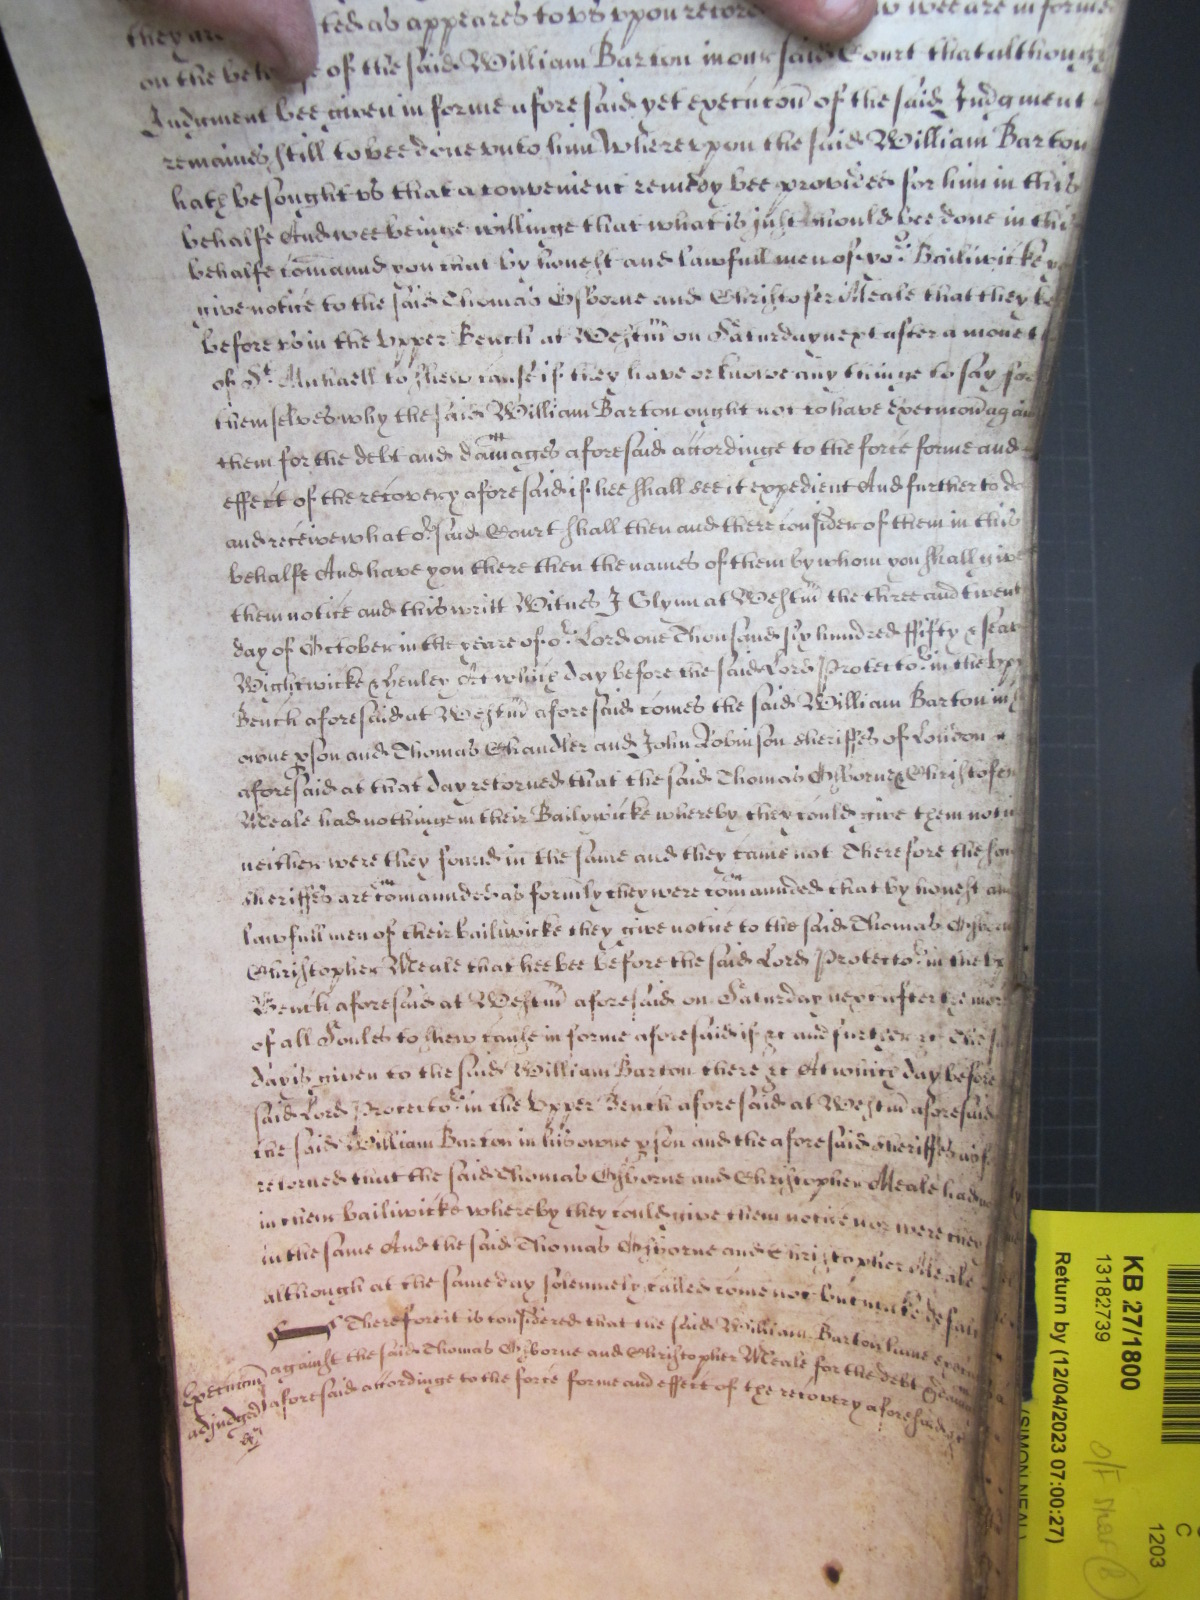 they are ted as appeares to us upon record wee are informed
on the behalfe of the said William Barton in our said Court that although
Judgment bee given in forme aforesaid yet execucōn of the said Judgment
remaines still to bee done unto him Whereupon the said William Barton
hath besought us that a convenient remedy bee provided for him in this
behalfe And wee beinge willinge that what is just should bee done in this
behalfe comānd you that by honest and lawfull men of yor Bailiwicke
give notice to the said Thomas Osborne and Christofer Meale that they be
before us in the Upper Bench at Westm̄ on Saturday next after a monet
of St. Michaell to shew cause if they have or knowe any thinge to say for
themselves why the said William Barton ought not to have execucōn again
them for the debt and dam̄ages aforesaid accordinge to the force forme and
effect of the recovery aforesaid if hee shall see it expedient And further to do
and receive what or said Court shall then and there consider of them in this
behalfe And have you there then the names of them by whom you shall give
them notice and this writt Witnes J Glynn at Westm̄ the three and twent
day of October in the yeare of or Lord one Thousand six hundred ffifty & sea
Wightwicke & Henley At which day before the said Lord Protector in the Upp
Bench aforesaid at Westm̄ aforesaid comes the said William Barton in h
owne pson and Thomas Chandler and John Robinson sheriffes of London
aforesaid at that day retorned that the said Thomas Osborne & Christofer
Meale had nothinge in their Bailywicke whereby they could give them noti
neither were they found in the same and they came not Therefore the
sheriffes are com̄aunded as formly they were com̄aunded that by honest an
lawfull men of their bailiwicke they give notice to the said Thomas Osborne
Christopher Meale that hee bee before the said Lord Protector in the Up
Bench aforesaid at Westm̄ aforesaid on Saturday next after the mor
of all Soules to shew cause in forme aforesaid if &c and further &c The
day is given to the said William Barton there &c At which day before
said Lord Protector in the Upper Bench aforesaid at Westm̄ aforesaid
the said William Barton in his owne pson and the aforesaid sheriffes
retorned that the said Thomas Osborne and Christopher Meale had
in their bailiwicke whereby they could give them notice nor were they
in the same And the said Thomas Osborne and Christopher Meale
although at the same day solemnely called come not but make defau
Therefore it is considered that the said William Barton have execu
Execucōn against the said Thomas Osborne and Christopher Meale for the debt & dam
adjudged aforesaid accordinge to the force forme and effect of the recovery aforesaid &c
&c
KB 27/1800
13182739
Return by (12/04/2023 07:00:27)
(SIMON NEAL)
C
1203